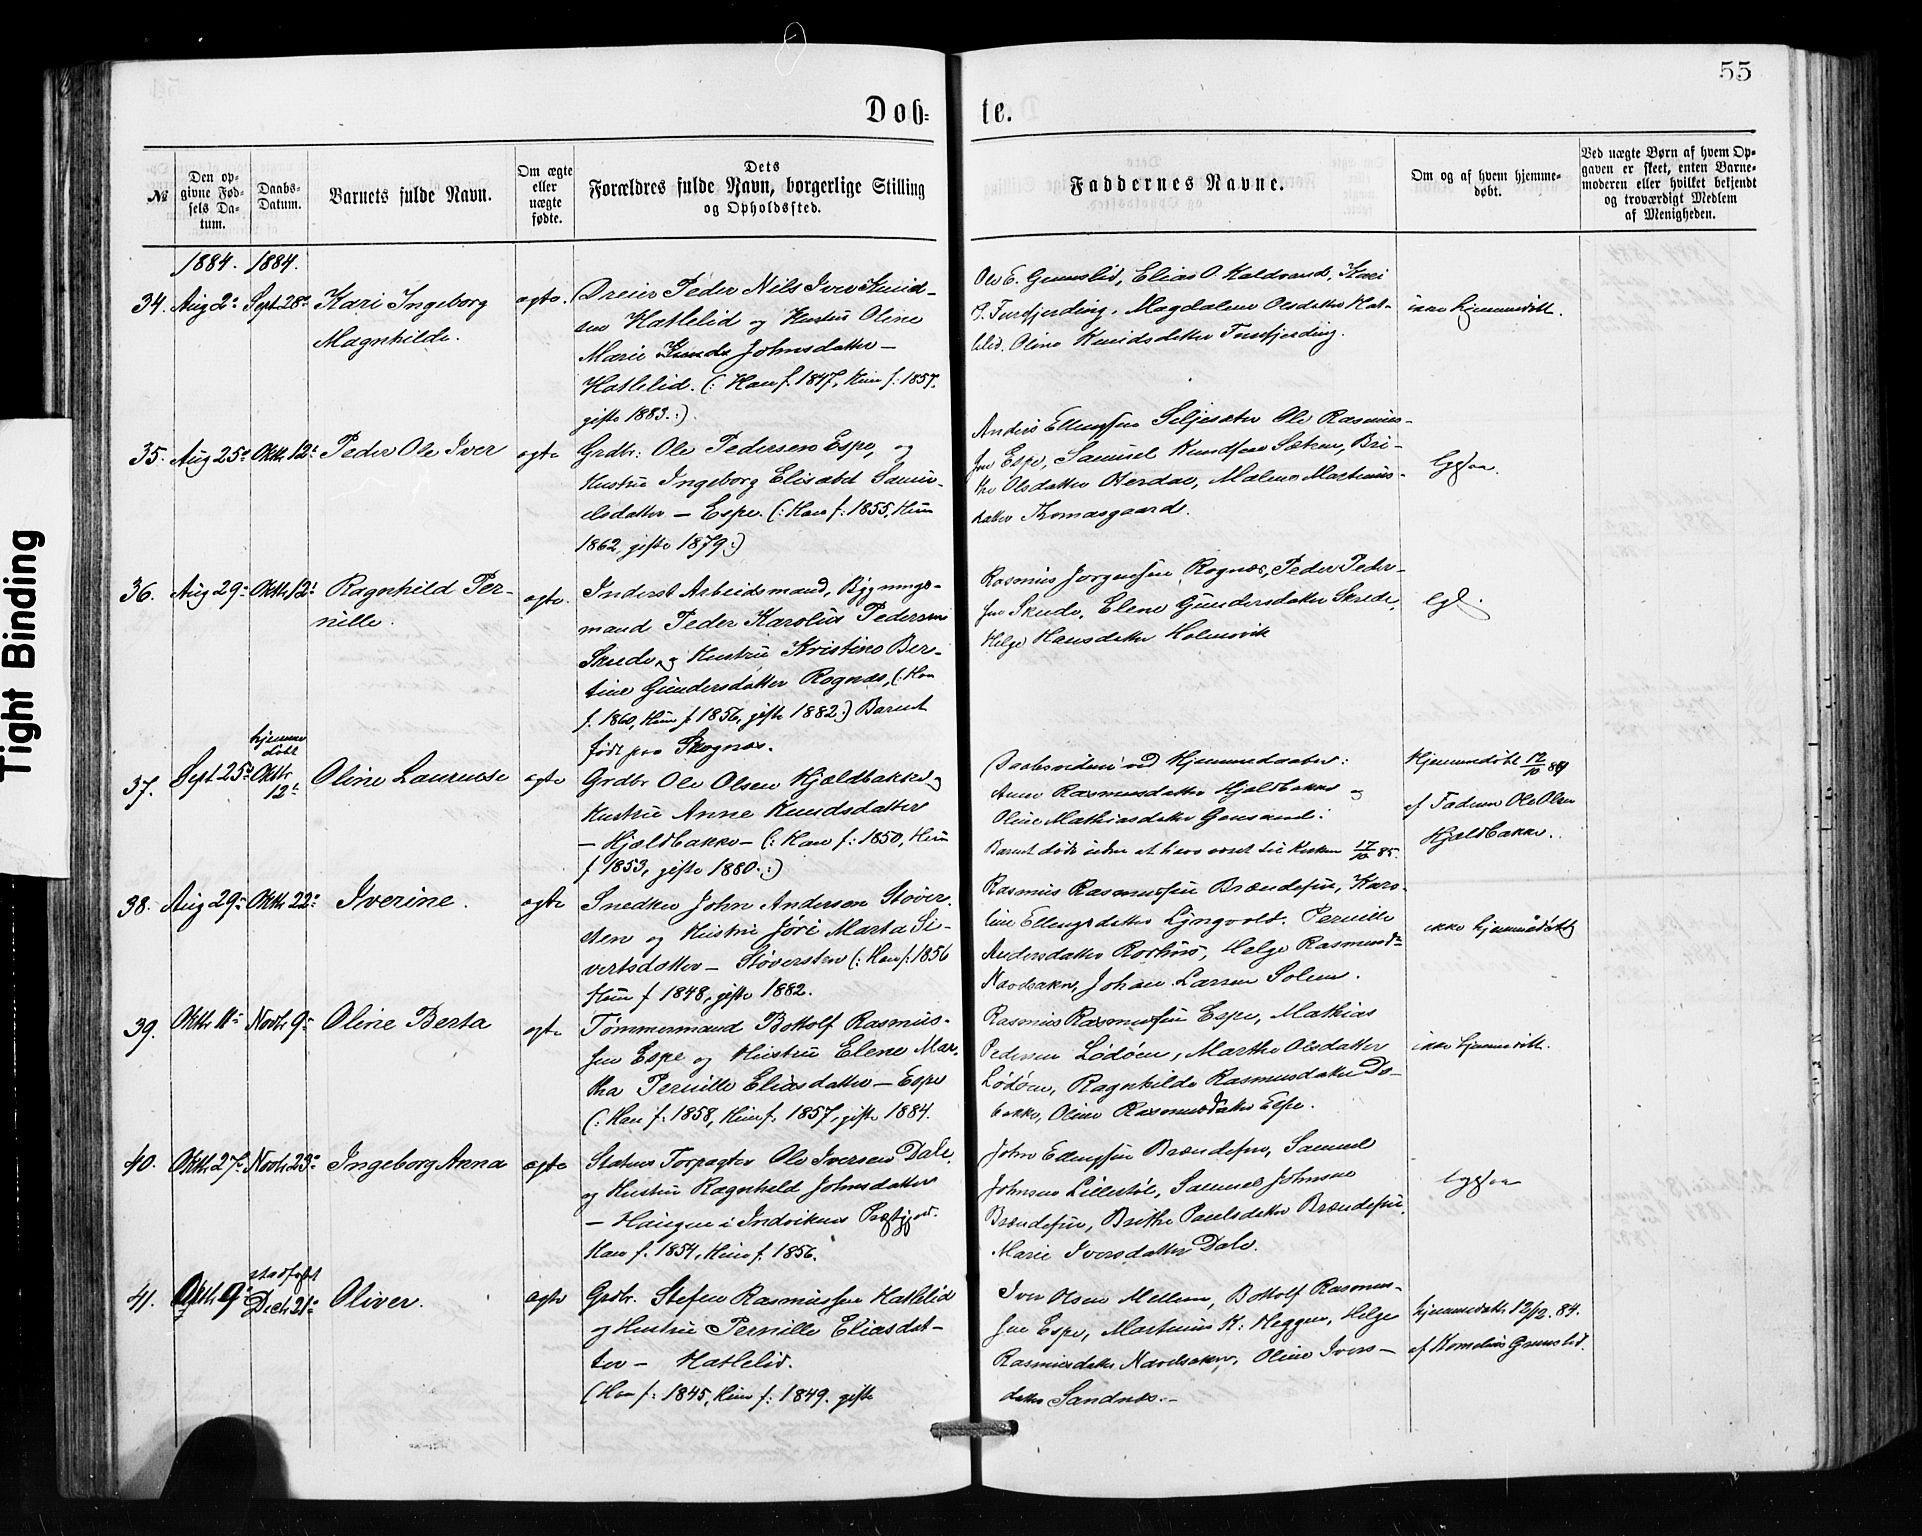 55
Døb- te.
№
Den opgivne Fødsels Datum.
Daabs-Datum.
Barnets fulde Navn.
Om ægte eller uægte fødte.
Dets
Forældres fulde Navn, borgerlige Stilling
og Opholdssted.
Faddernes Navne.
Om og af hvem hjemmedøbt.
Ved uægte Børn af hvem Opgaven er skeet, enten Barnemoderen eller hvilket bekjendt og troværdigt Medlem af Menigheden.
1884. 1884.
34. Aug 2 Sept 28 Kari Ingeborg
Magnhilde.
ægte. Dreier Peder Nils Iver Knud-
sen Hatlelid og Hustru Oline
Marie Johnsdatter –
Hatlelid. (: Han f. 1847, Hun f: 1857.
gifte 1883.:)
Ole E. Elias O. Kari
Magdalene Olsdatter Hat-
lelid. Oline Knudsdatter
ikke hjemmedøbt.
35. Aug 25 Oktbr 12 Peder Ole Iver
ægte Grdbr: Ole Pedersen Espe, og
Hustru Ingeborg Elisabet Samu-
elsdatter – Espe. (: Han f: 1855, Hun
1862, gifte 1879:)
Anders Ellingsen Seljesæter Ole Rasmus-
sen Espe, Samuel Knudsen Bri-
the Olsdatter Malene Martinus-
datter Thomasgaard.
36. Aug 29 Oktbr 12 Ragnhild Per-
nille.
ægte. Inderst Arbeidsmand, Bygnings-
mand Peder Karolius Pedersen
Skrede og Hustru Kristine Ber-
tine Gundersdatter Rognæs, (: Han
f. 1860, Hun f 1856, gifte 1882:) Barnet
født paa Rognæs.
Rasmus Jorgensen Rognæs, Peder Peder-
sen Skrede, Elene Gundersdatter Skrede,
Helge Hansdatter Holmvik
37. Sept 25 hjemme
døbt
Oktbr
12 Oline Laurense
ægte Grdbr Ole Olsen Hjældbakke og
Hustru Anne Knudsdatter
– Hjældbakke – (: Han f: 1850, Hun
f 1853, gifte 1880.:)
Daabsvidner ved Hjemmedaaben:
Anne Rasmusdatter Hjeldbakke og
Oline Mathiasdatter
Barnet døde uden at have været til Kirken 17/10 85.
Hjemmedøbt 12/10 84
af Faderen Ole Olsen
Hjeldbakke.
38. Aug 29 Oktbr 22 Iverine.
ægte Snedker John Andersen Støver-
sten og Hustru Jøri Marta Si-
vertsdatter – Støversten (: Han f: 1856
Hun f 1848, gifte 1882.
Rasmus Rasmussen Brændefur, Karo-
line Ellingsdatter Lyngvold. Pernille
Andersdatter Rorhus, Helge Rasmusd
Navelsaker, Johan Larsen Solem.
ikke hjemmedøbt
39. Oktbr 11 Novbr 9 Oline Berta
ægte Tømmermand Bottolf Rasmus-
sen Espe og Hustru Elene Mar-
tha Pernille Eliasdatter – Espe
(: Han f: 1858, Hun f. 1857, gifte 1884.
Rasmus Rasmussen Espe, Mathias
Pedersen Lødøen, Marthe Olsdatter
Lødøen, Ragnhilde Rasmusdatter De-
bakke, Oline Rasmusdatter Espe.
ikke hjemmedøbt.
40. Oktbr 27 Novbr 23 Ingeborg Anna
ægte Statens Forpagter Ole Iversen Dale,
og Hustru Ragnhild Johnsdatter
– Haugen i Indvikens Præstgjed.
Han f. 1854, Hun f. 1856.
John Ellingsen Brændefur, Samuel
Johnsen Lillestøl, Samuel Johnsen
Brændefur, Brithe Paulsdatter Brændefur,
Marie Iversdatter Dale.
41. Oktbr 9 stadfæst
Decbr 21 Oliver.
ægte Grdbr. Stefen Rasmussen Hatlelid
og Hustru Pernille Eliasdat-
ter – Hatlelid.
(Han f: 1845, Hun f: 1849. gifte
Iver Olsen Mellem, Bottolf Rasmus-
sen Espe, Martinus K: Heggen, Helge
Rasmusdatter Navelsaker, Oline Ivers –
datter Sandnes. –
hjemmedøbt 12/10. 84.
af Kornelius
Tight Binding